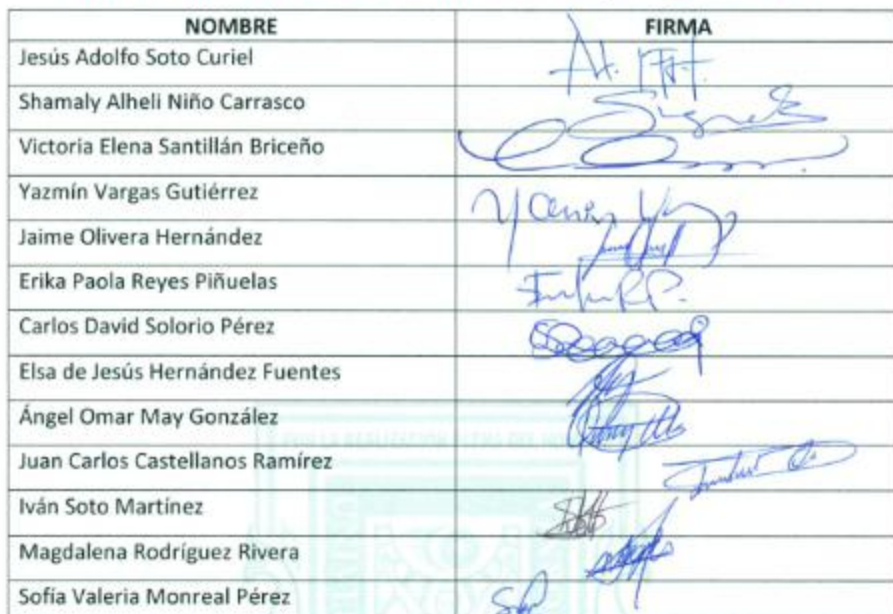 NOMBRE FIRMA
Jesús Adolfo Soto Curiel
Shamaly Alheli Niño Carrasco
Victoria Elena Santillán Briceño
Yazmín Vargas Gutiérrez
Jaime Olivera Hernández
Erika Paola Reyes Piñuelas
Carlos David Solorio Pérez
Elsa de Jesús Hernández Fuentes
Ángel Omar May González
POR LA REALIZACIÓN PLENA DEL
Juan Carlos Castellanos Ramírez
Iván Soto Martínez
Magdalena Rodríguez Rivera
Sofía Valeria Monreal Pérez